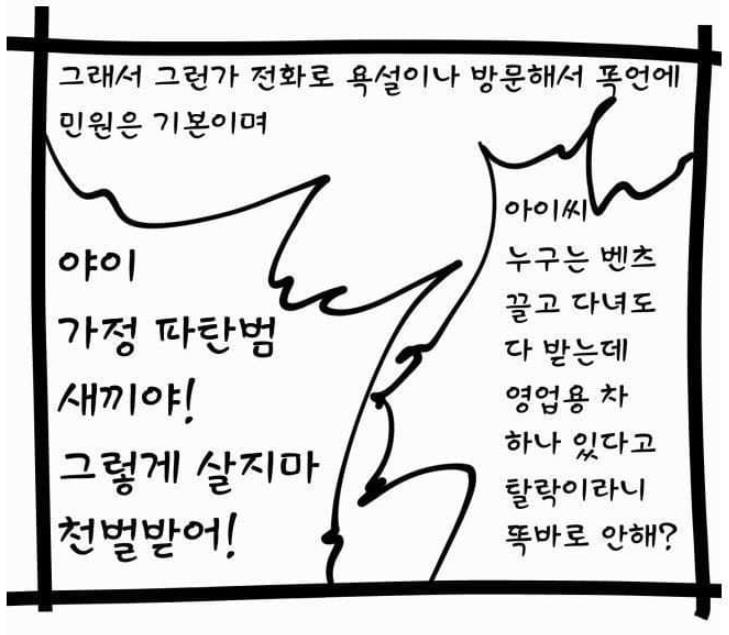 그래서 그런가 전화로 욕설이나 방문해서 폭언에
민원은 기본이며
야이
가정 파탄범
새끼야!
그렇게 살지마
천벌받어!
아이씨
누구는 벤츠
끌고 다녀도
다 받는데
영업용 차
하나 있다고
탈락이라니
똑바로 안해?